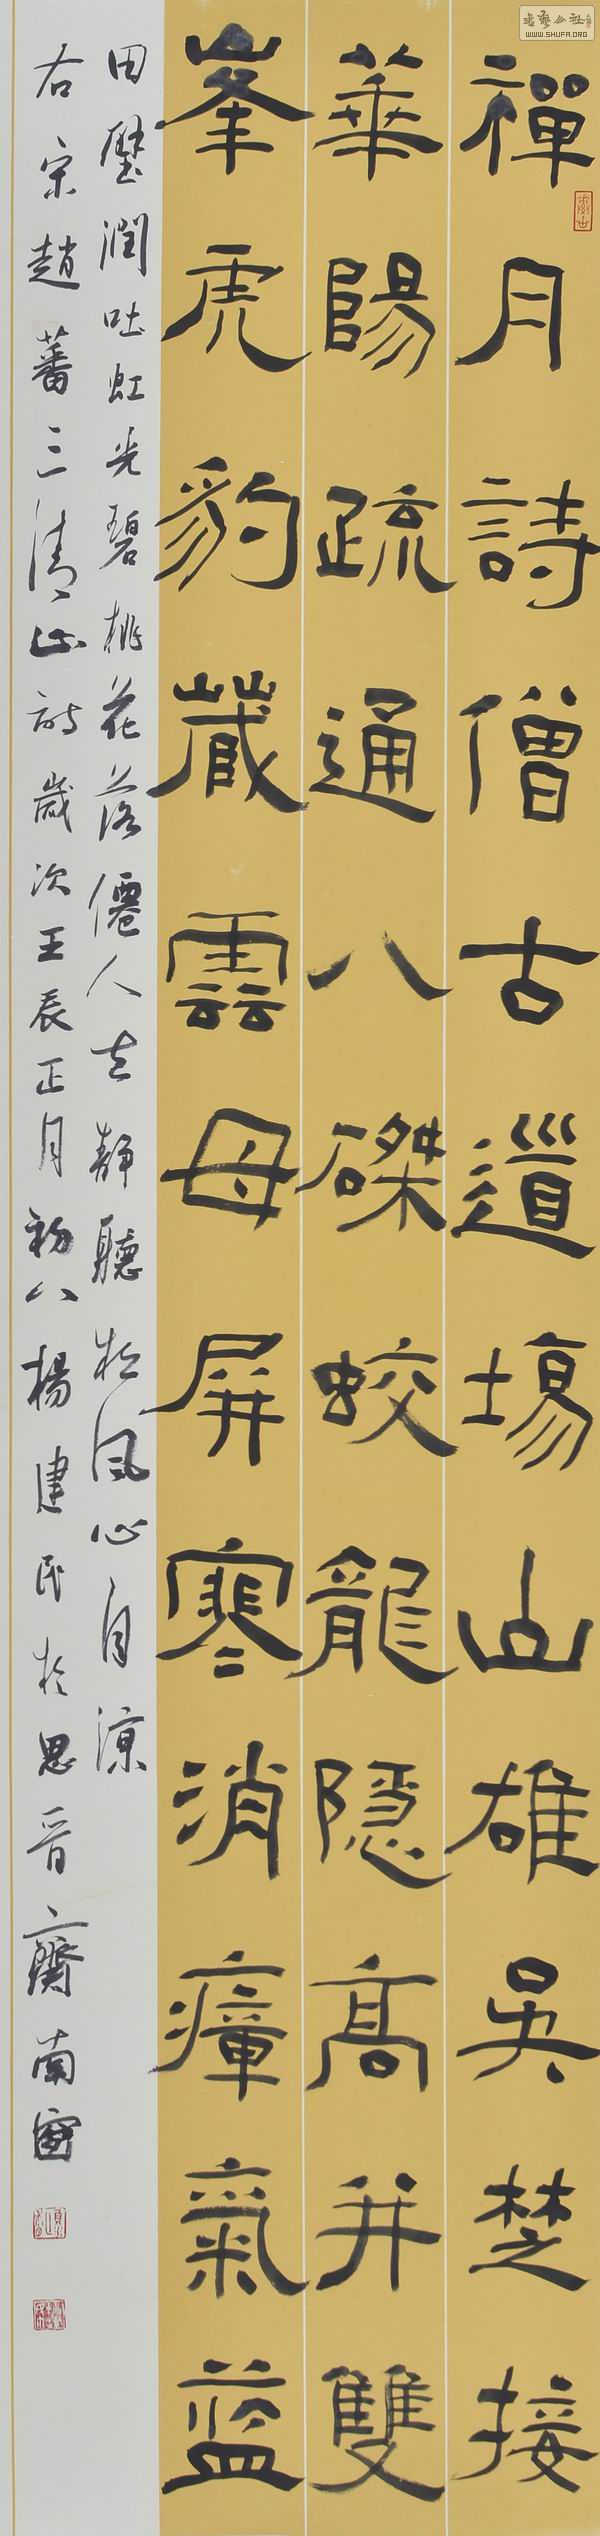 禪月詩僧古道場山雄吳楚接
華陽疏通八磔蛟龍隱高并雙
峯虎豹藏雲母屏寒消瘴氣藍
田璧潤吐虹光碧桃花落僊人去靜聽松風心自涼
右宋趙蕃三清山詩歲次壬辰正月初八楊建民於思晉齋南窗
書藝公社
WWW.SHUFA.ORG